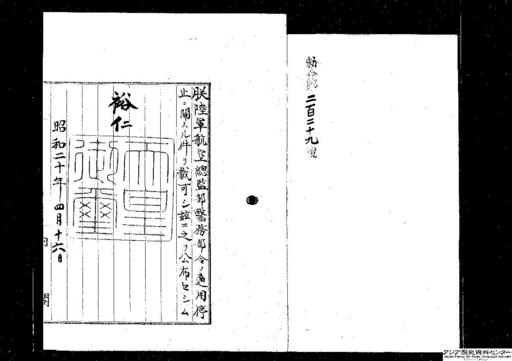 勅令第二百二十九號
朕陸軍航空總監部醫務部令ノ適用停
止ニ關スル件ヲ裁可シ玆ニ之ヲ公布セシム
裕仁
天皇御璽
昭和二十年四月十六日
内閣
アジア歴史資料センター